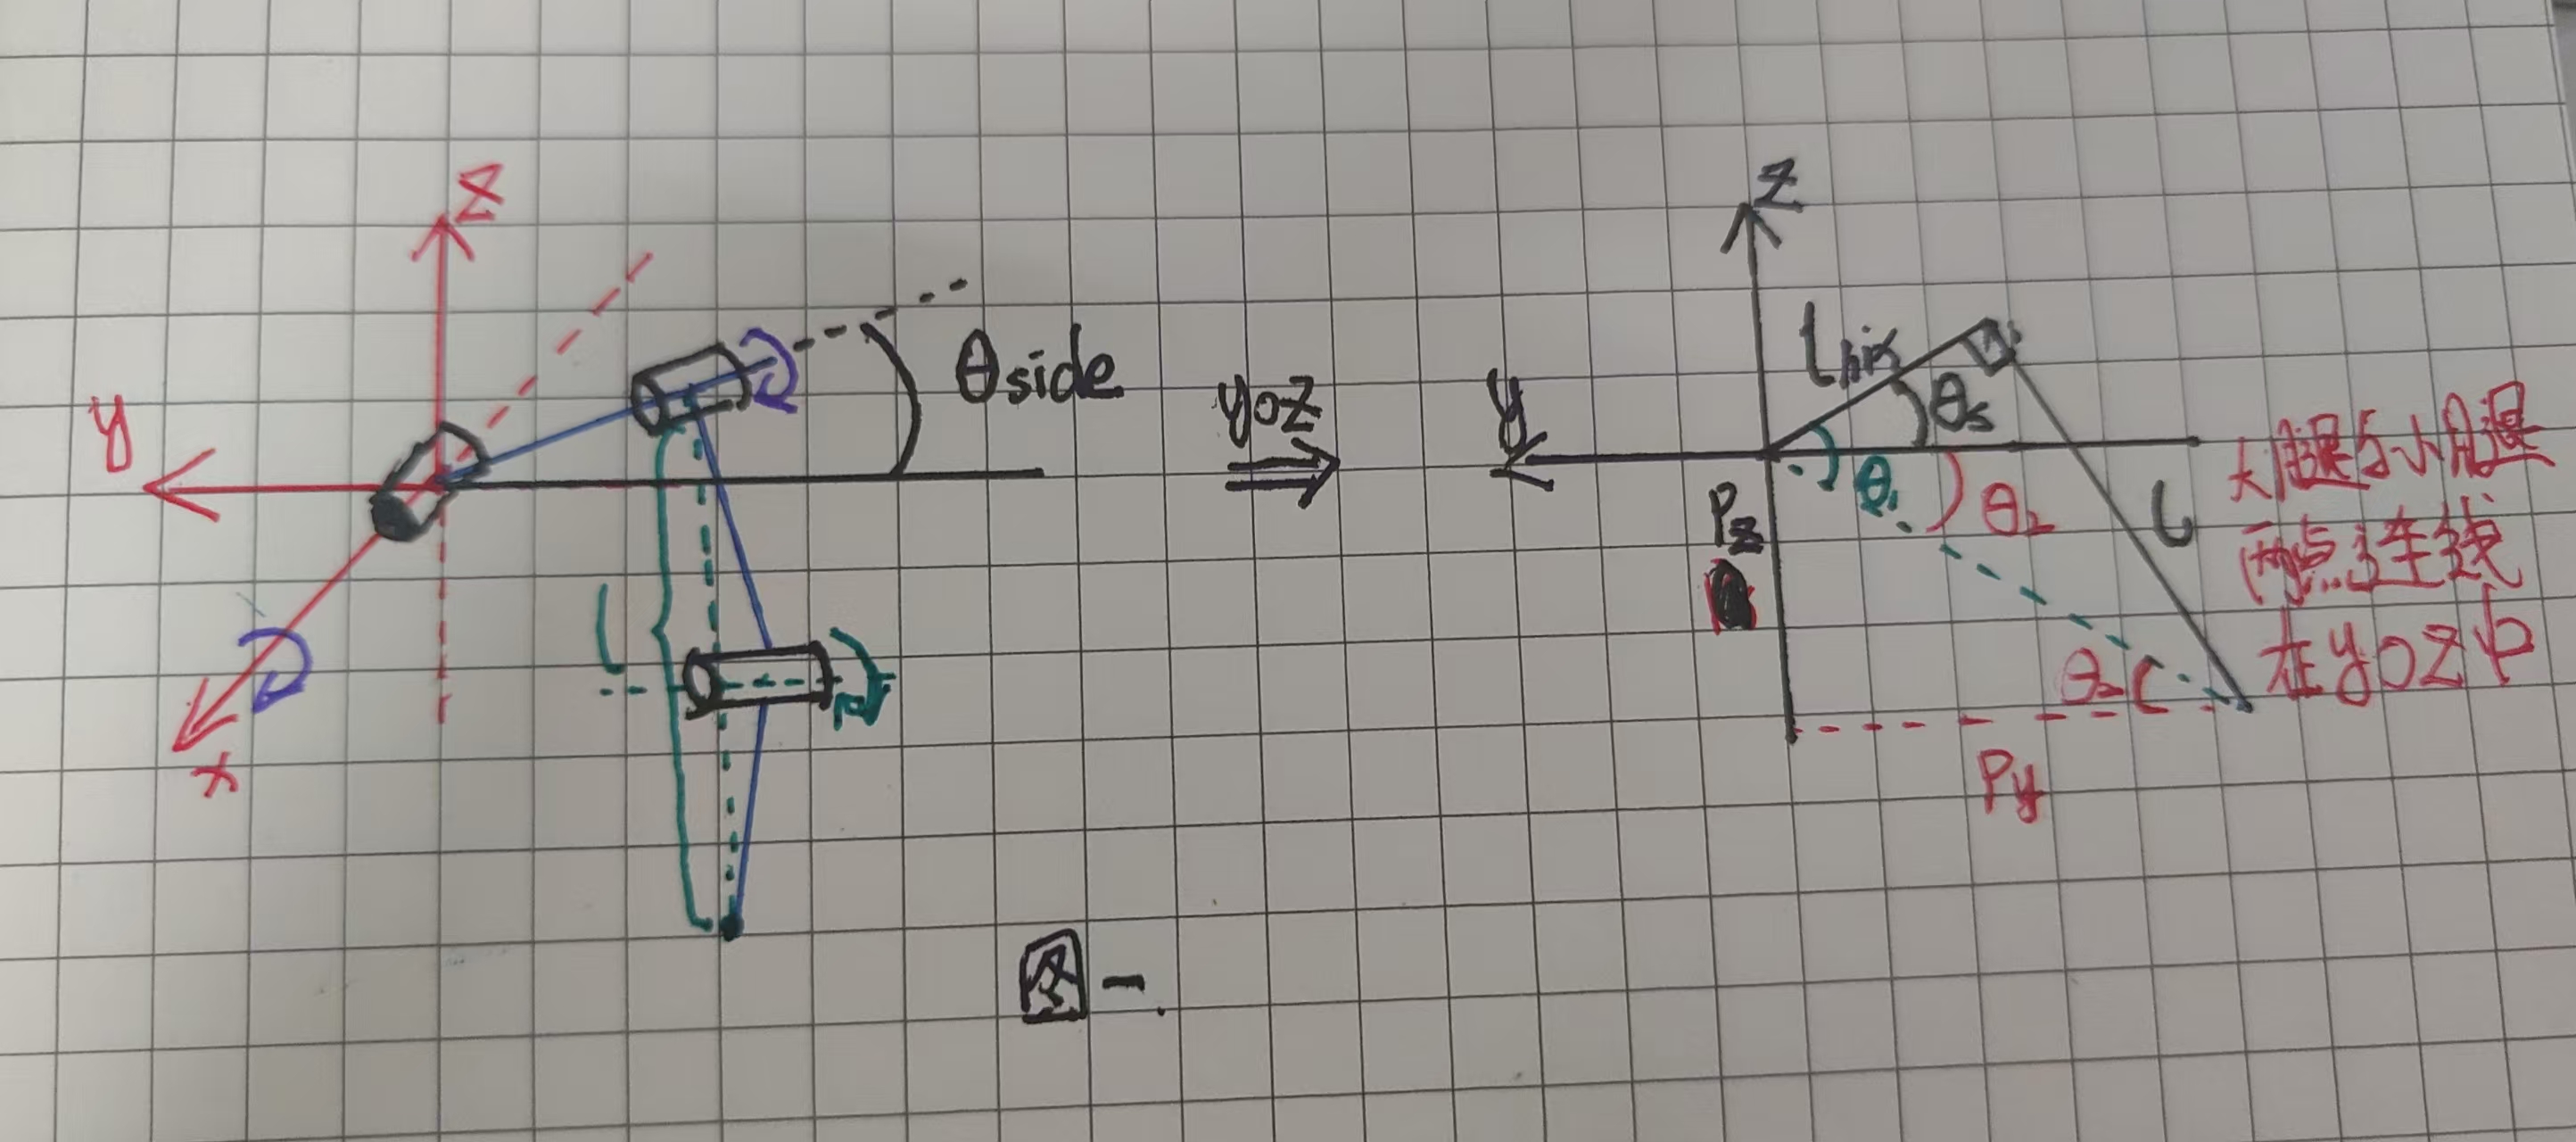 z
y
x
θside
l
yoz
z
y
lhip
θs
θ₁
θ₂
Pz
l
θ₂
Py
大腿与小腿
两点连线
在yoz中
图一.